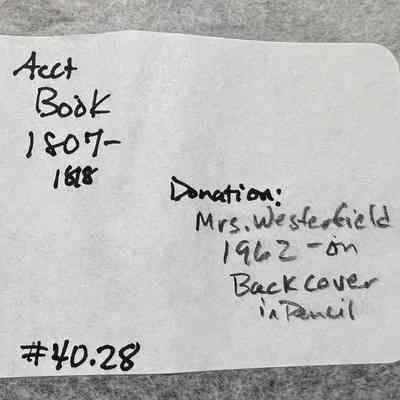 Acct
Book
1807-
1818
Donation:
Mrs. Westerfield
1962 - on
Back cover
in Pencil
#40.28